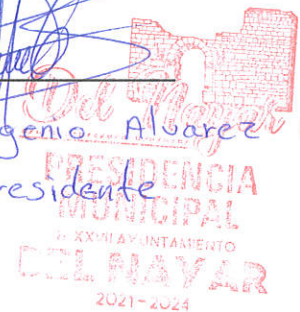 Del Nayar
genio Alvarez
PRESIDENCIA
residente
MUNICIPAL
XXVII AYUNTAMIENTO
DEL NAYAR
2021-2024